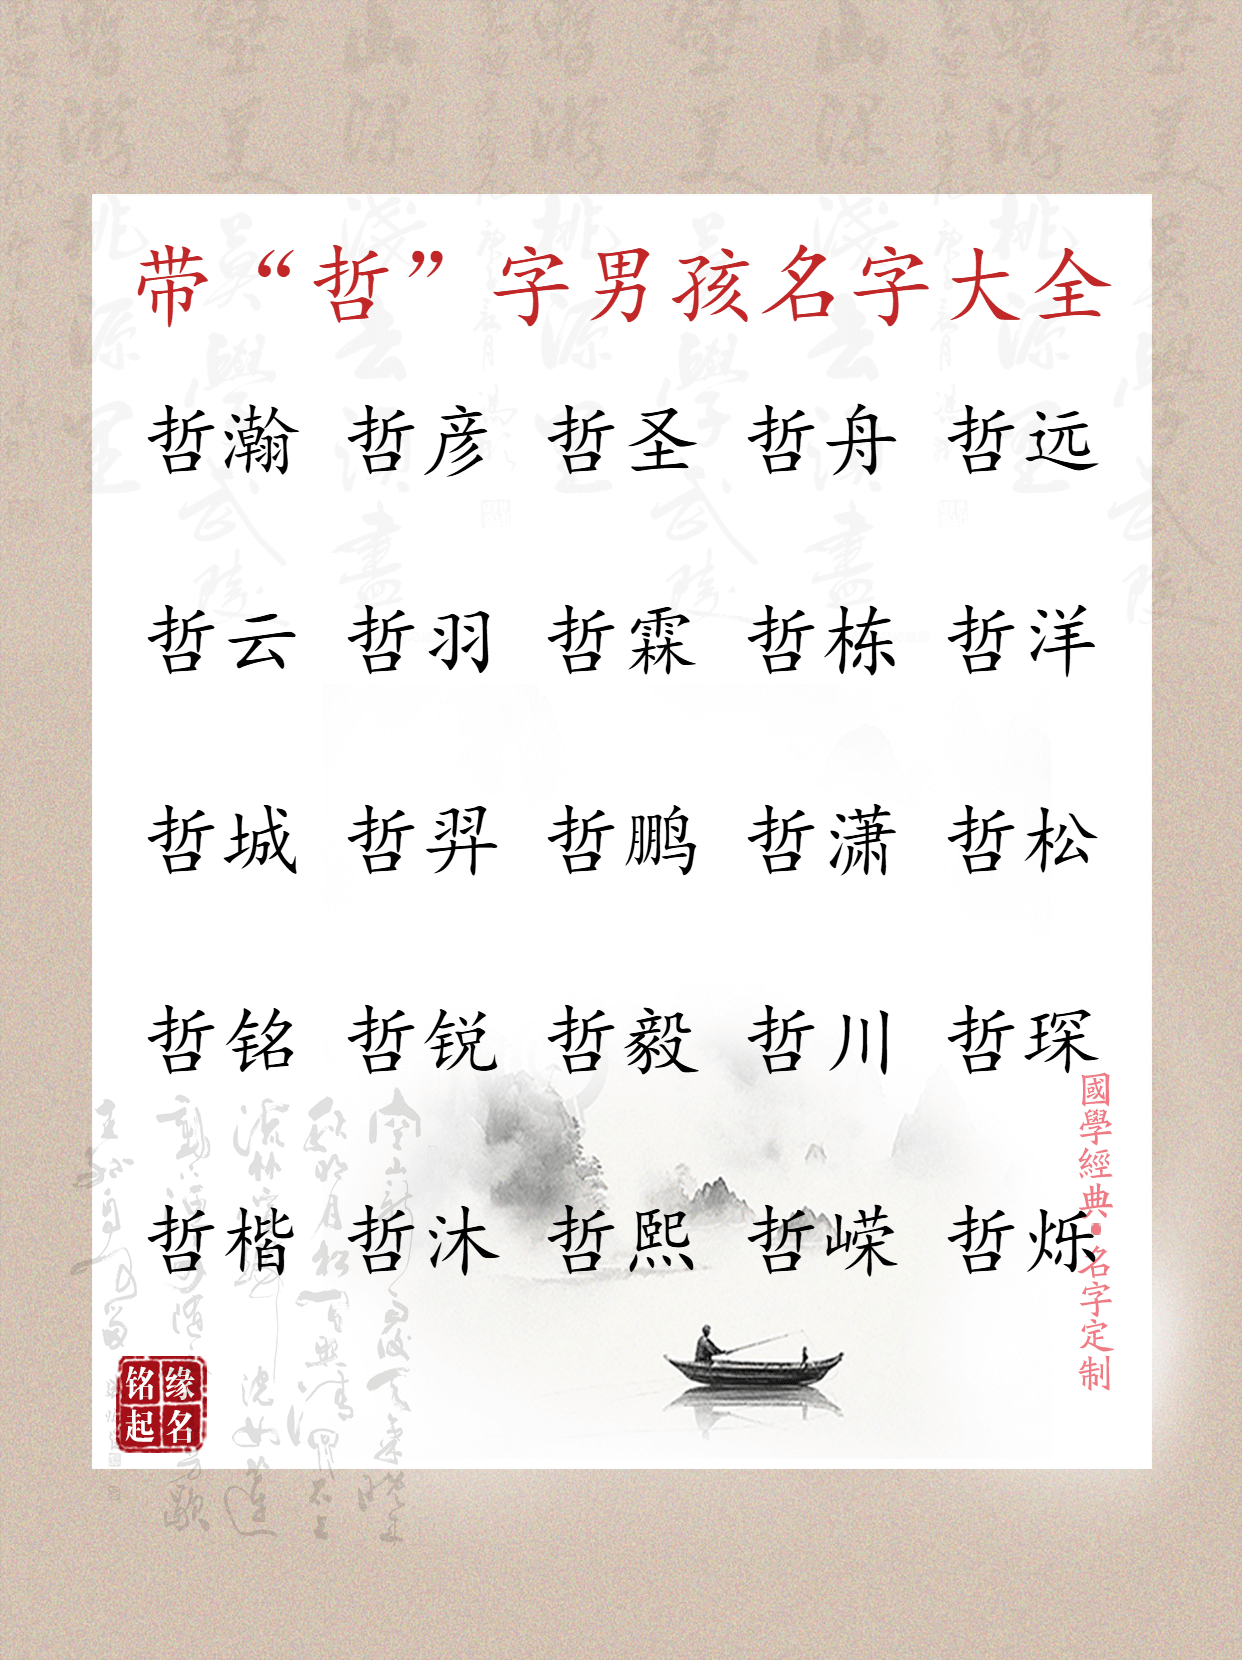 带“哲”字男孩名字大全
哲瀚 哲彦 哲圣 哲舟 哲远
哲云 哲羽 哲霖 哲栋 哲洋
哲城 哲羿 哲鹏 哲潇 哲松
哲铭 哲锐 哲毅 哲川 哲琛
哲楷 哲沐 哲熙 哲嵘 哲烁
國學經典·名字定制
缘名
铭起